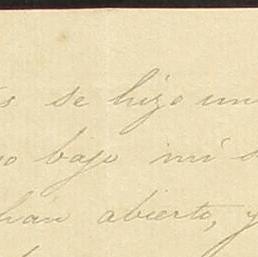 s se hizo un
o bajo mi s
han abierto, y